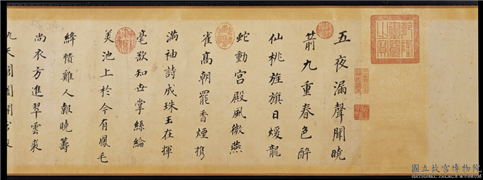 五夜漏聲曉
箭九重春色醉
仙桃旌旗日煖龍
蛇動宮殿風微燕
雀高朝罷香煙携
滿袖詩成珠玉在揮
毫欲知世掌絲綸
美池上於今有鳳毛
絳幘雞人報曉籌
尚衣方進翠雲裘
九天閶闔開宮
國立故宮博物院
NATIONAL PALACE MUSEUM